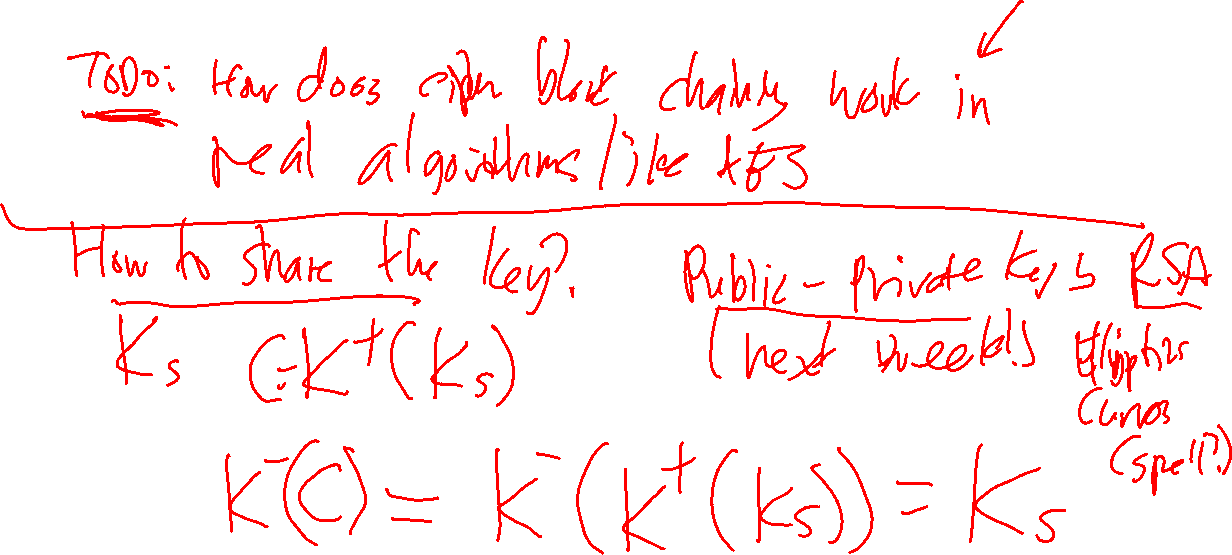 TODO: How does cipher block chaining work in
real algorithms like AES
How to share the key?
Public-private keys RSA
(next week!)
Elliptic
Curves
(spell?)
Ks C=K⁺(Ks)
K⁻(C) = K⁻(K⁺(Ks)) = Ks